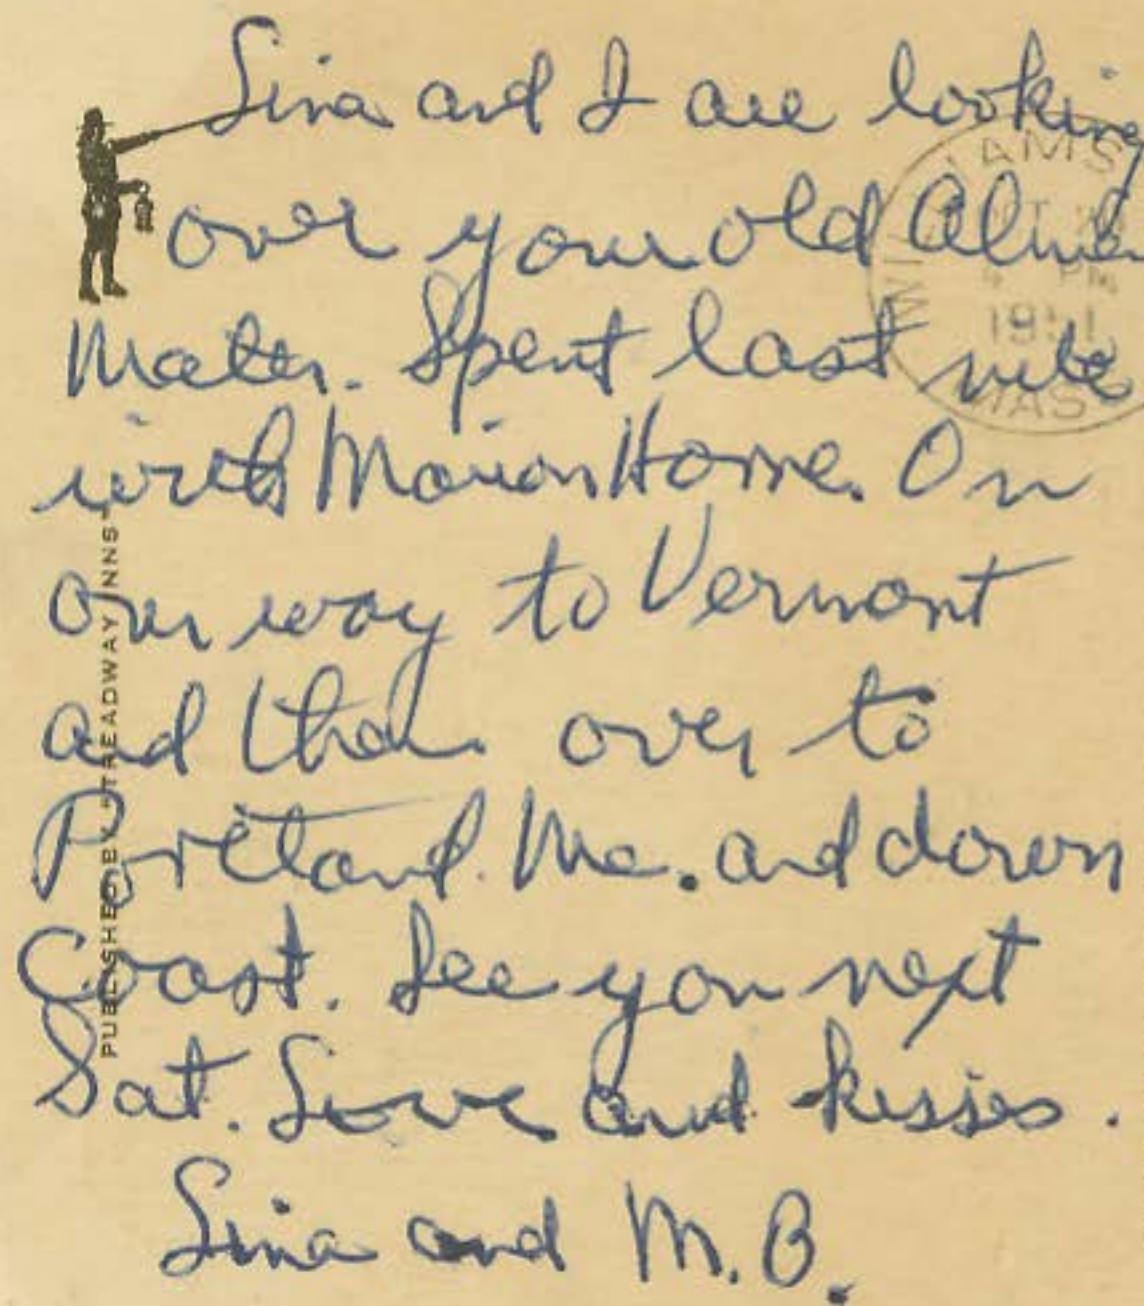 Lina and I are looking
over your old Alma
Mater. Spent last nite
with Marion Horne. On
our way to Vermont
and then over to
Portland. Me. and down
Coast. See you next
Sat. Love and kisses.
Lina and M. B.
PUBLISHED BY "TREADWAY INNS"
WILLIAMS
4 PM
1951
MASS